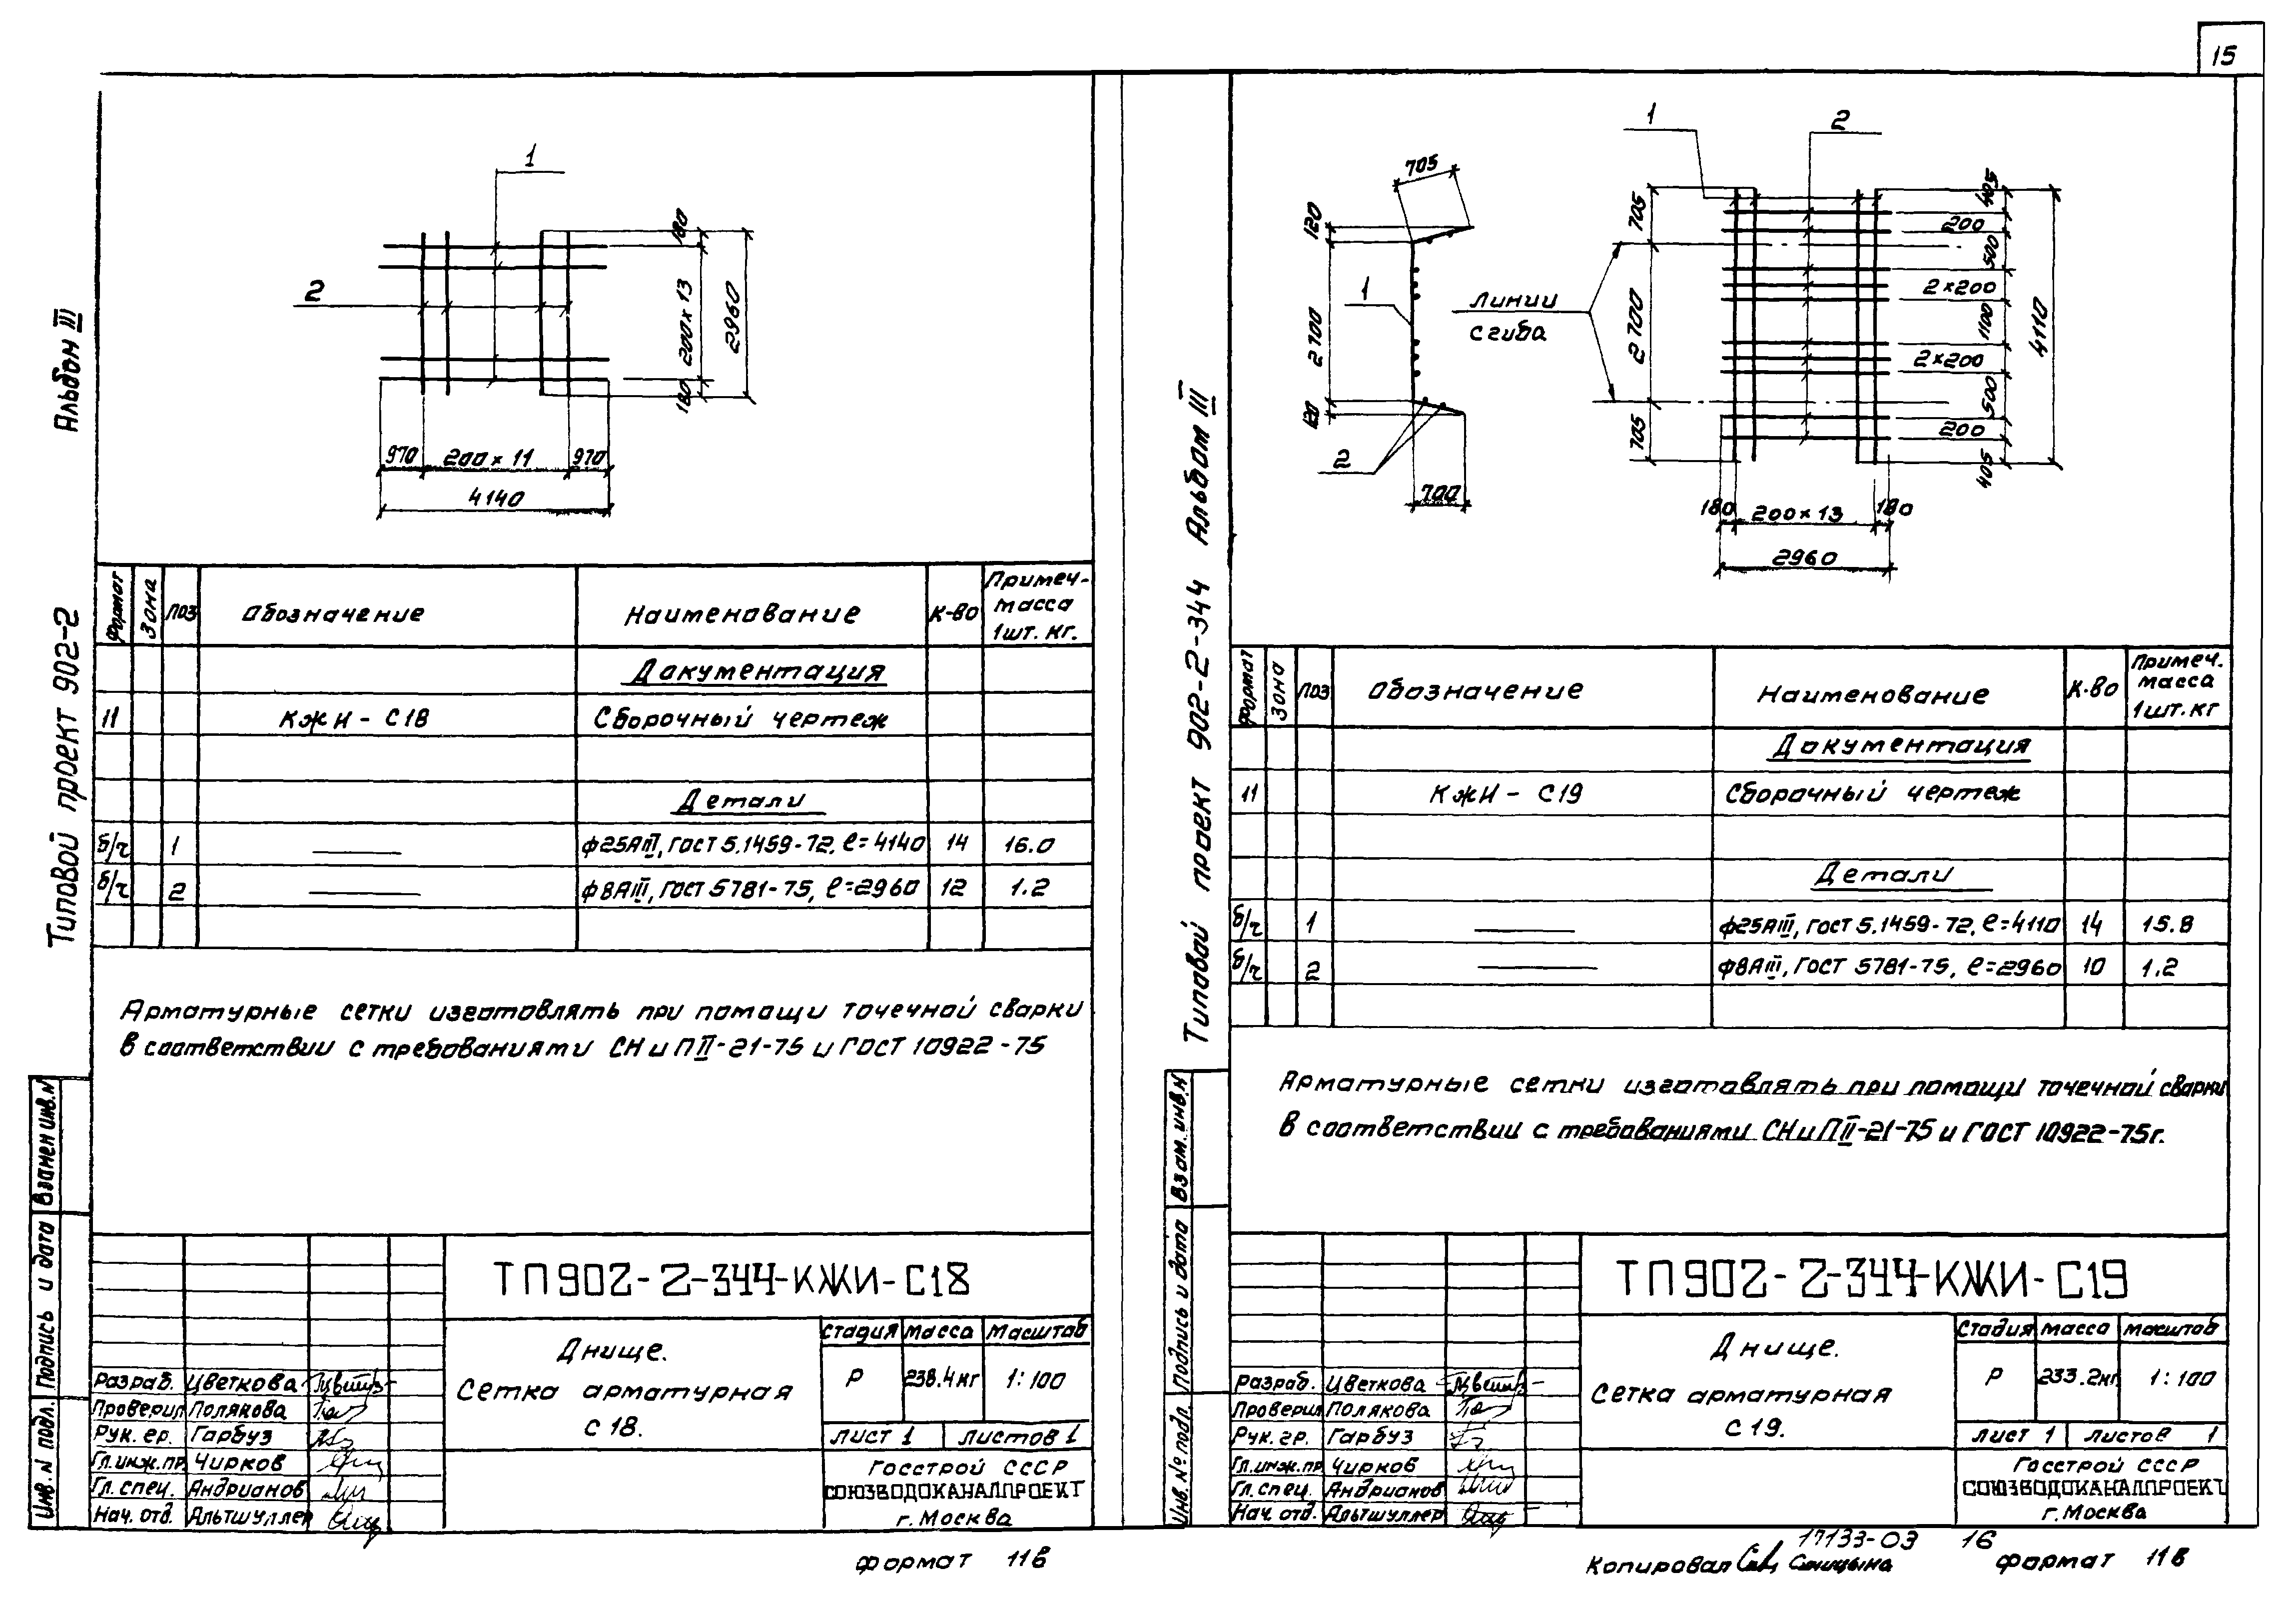 15
Альбом III
Типовой проект 902-2
1
2
180
200×13
180
2960
970
200×11
970
4140
Формат
Зона
Поз
Обозначение
Наименование
К-во
Примеч-
масса
1шт. кг.
Документация
11 КЖИ-С18 Сборочный чертеж
Детали
б/ч 1 ф25АIII, ГОСТ 5.1459-72, ℓ=4140 14 16.0
б/ч 2 ф8АIII, ГОСТ 5781-75, ℓ=2960 12 1.2
Арматурные сетки изготовлять при помощи точечной сварки
в соответствии с требованиями СНиП II-21-75 и ГОСТ 10922-75
Взамен инв.N
Подпись и дата
Инв. N подл.
ТП902-2-344-КЖИ-С18
Днище.
Сетка арматурная
С 18.
Стадия Масса Масштаб
Р 238.4кг 1:100
Лист 1 Листов 1
Разраб. Цветкова
Проверил Полякова
Рук. гр. Гарбуз
Гл.инж.пр. Чирков
Гл. спец. Андрианов
Нач. отд. Альтшуллер
Госстрой СССР
СОЮЗВОДОКАНАЛПРОЕКТ
г. Москва
Формат 11в
Типовой проект 902-2-344 Альбом III
705
120
2700
120
1
2
700
Линии
сгиба
1
2
705
2700
705
405
200
500
2×200
1100
2×200
500
200
405
4110
180
200×13
180
2960
Формат
Зона
Поз
Обозначение
Наименование
К-во
Примеч.
масса
1шт. кг
Документация
11 КЖИ-С19 Сборочный чертеж
Детали
б/ч 1 ф25АIII, ГОСТ 5.1459-72, ℓ=4110 14 15.8
б/ч 2 ф8АIII, ГОСТ 5781-75, ℓ=2960 10 1.2
Арматурные сетки изготовлять при помощи точечной сварки
в соответствии с требованиями СНиП II-21-75 и ГОСТ 10922-75г.
Взам. инв.N
Подпись и дата
Инв. № подл.
ТП902-2-344-КЖИ-С19
Днище.
Сетка арматурная
С 19.
Стадия Масса Масштаб
Р 233.2кг 1:100
Лист 1 Листов 1
Разраб. Цветкова
Проверил Полякова
Рук. гр. Гарбуз
Гл.инж.пр Чирков
Гл. спец. Андрианов
Нач. отд. Альтшуллер
Госстрой СССР
СОЮЗВОДОКАНАЛПРОЕКТ
г. Москва
17133-03 16
Копировал Синицына
Формат 11в